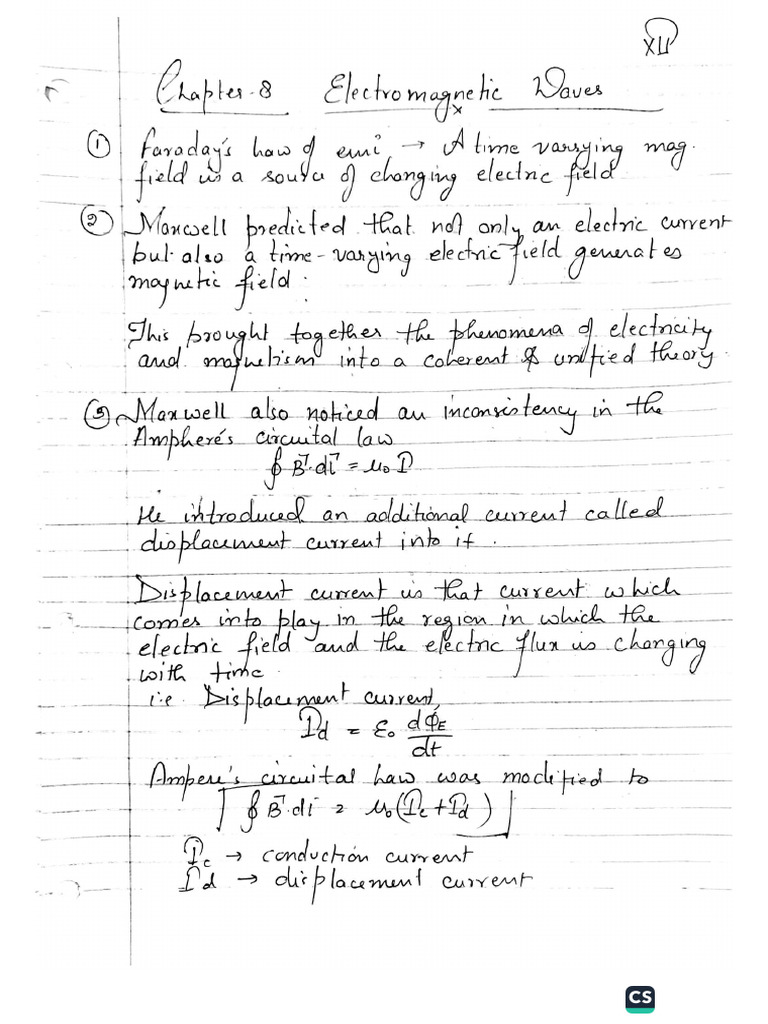 XII
Chapter-8 Electromagnetic Waves
① Faraday's Law of emi → A time varying mag.
field is a source of changing electric field
② Maxwell predicted that not only an electric current
but also a time-varying electric field generates
magnetic field.
This brought together the phenomena of electricity
and magnetism into a coherent & unified theory.
③ Maxwell also noticed an inconsistency in the
Amphere's circuital law
∮ B⃗·dl⃗ = μ₀ I
He introduced an additional current called
displacement current into it.
Displacement current is that current which
comes into play in the region in which the
electric field and the electric flux is changing
with time.
i.e. Displacement current,
I_d = ε₀ dϕ_E/dt
Ampere's circuital Law was modified to
∮ B⃗·dl = μ₀(I_c + I_d)
I_c → conduction current
I_d → displacement current
CS